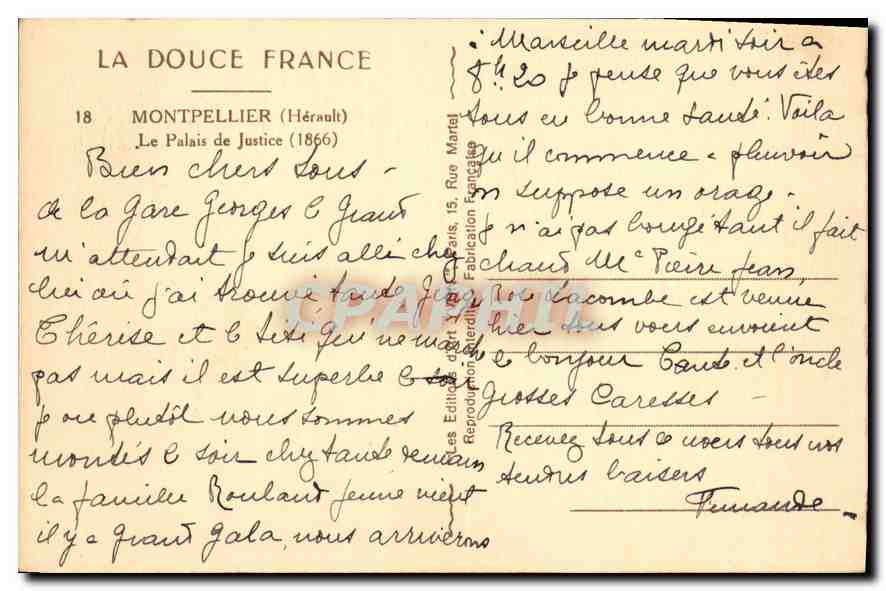 LA DOUCE FRANCE
18 MONTPELLIER (Hérault)
Le Palais de Justice (1866)
Bien chers tous -
de la Gare Georges le Grand
m'attendait je suis allé chez
lui où j'ai trouvé tante Jean
Thérèse et le Sési qui ne marche
pas mais il est superbe le soir
je ou plutôt nous sommes
montés le soir chez tante demain
la famille Rouland jeune vient
il y a grand Gala, nous arriverons
Les Editions d'Art Yvon Paris, 15, Rue Martel
Reproduction Interdite Fabrication Française
à Marseille mardi soir a
8h 20 je pense que vous êtes
tous en bonne santé. Voila
qu'il commence a pleuvoir
on suppose un orage -
Je n'ai pas bougé tant il fait
chaud Me Pierre Jean,
Rose Lacombe est venue
hier tous vous envoient
le bonjour Tante et l'oncle
Grosses Caresses -
Recevez tous de nous tous nos
tendres baisers
Fernande -
CPAPHIL